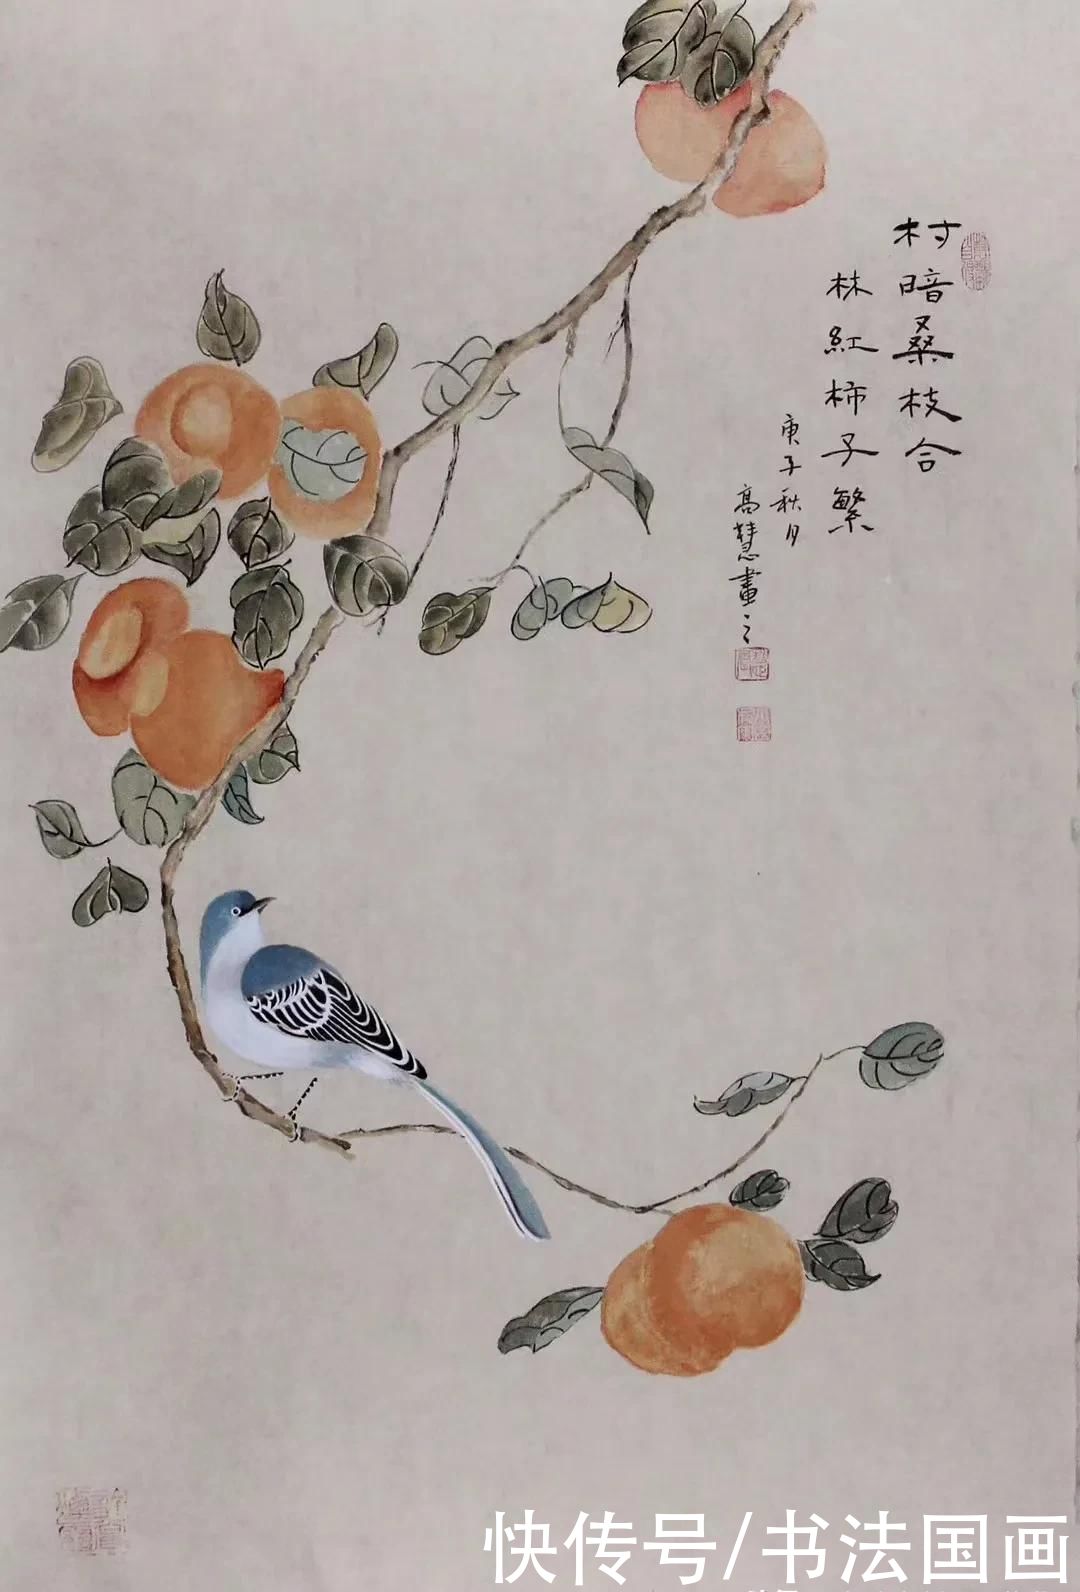 村暗桑枝合
林紅柿子繁
庚子秋月
高慧畫之
快传号/书法国画